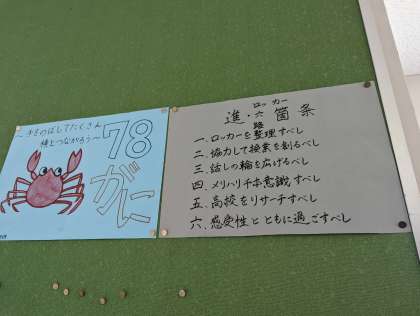 ～手をのばしてたくさん
横とつながろう～
78
がに
ロッカー
進・六箇条
路
一、ロッカーを整理すべし
二、協力して を創るべし
三、話しの輪を広げるべし
四、メリハリ 意識すべし
五、高校をリサーチすべし
六、感受性とともに過ごすべし